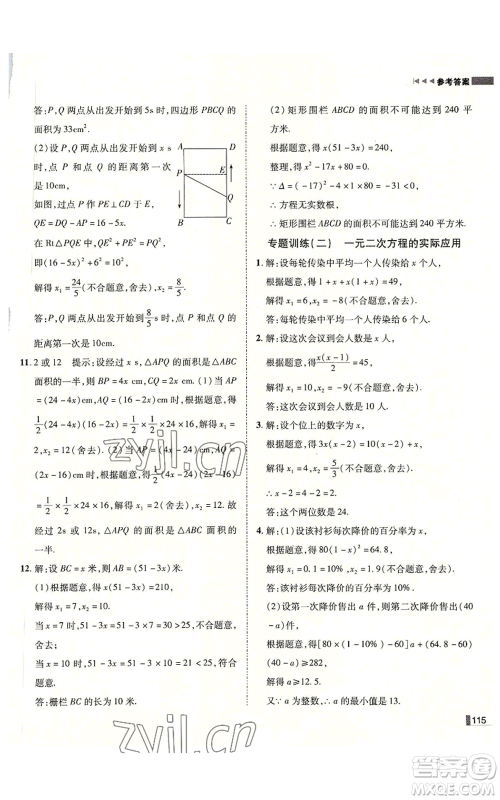 ◀◀◀ 参考答案
答:P,Q 两点从出发开始到 5s 时,四边形 PBCQ 的
面积为 33cm².
(2)设 P,Q 两点从出发开始到 x s
时,点 P 和点 Q 的距离第一次
是 10cm,
如图,过点 P 作 PE⊥CD 于 E,
QE=DQ-AP=16-5x.
在 Rt△PQE 中,
PE²+QE²=PQ²,
即(16-5x)²+6²=10²,
解得 x₁=24/5(不合题意,舍去),x₂=8/5.
答:P,Q 两点从出发开始到8/5s 时,点 P 和点 Q 的
距离第一次是 10cm.
A D P E Q B C
11. 2 或 12 提示:设经过 x s,△APQ 的面积是△ABC
面积的一半,则 BP=4x cm,CQ=2x cm. (1)当 AP=
(24-4x)cm,AQ=(16-2x)cm 时,根据题意,得
1/2(24-4x)(16-2x)=1/2×1/2×24×16,解得 x₁=
2,x₂=12(舍去). (2)当 AP=(4x-24)cm,AQ=
(2x-16)cm 时,根据题意,得1/2(4x-24)(2x-16)=
1/2×1/2×24×16,解得 x₁=2(舍去),x₂=12. 所以经
过 2s 或 12s,△APQ 的面积是△ABC 面积的
一半.
12. 解:设 BC=x 米,则 AB=(51-3x)米.
(1)根据题意,得 x(51-3x)=210.
解得 x₁=7,x₂=10.
当 x=7 时,51-3x=51-3×7=30>25(舍去).
当 x=10 时,51-3x=51-3×10=21<25,符合
题意.
答:栅栏 BC 的长为 10 米.
(2)矩形围栏 ABCD 的面积不可能达到 240 平
方米.
根据题意,得 x(51-3x)=240.
整理,得 x²-17x+80=0.
∵Δ=(-17)²-4×80=-31<0,
∴方程无实数根.
∴矩形围栏 ABCD 的面积不可能达到 240 平方米.
专题训练(二) 一元二次方程的实际应用
1. 解:设每轮传染中平均一个人传染给 x 个人,
根据题意,得 1+x+(1+x)x=49,
解得 x₁=6,x₂=-8(不合题意,舍去).
答:每轮传染中平均一个人传染给 6 个人.
2. 解:设这次会议到会人数为 x 人,
根据题意,得x(x-1)/2=45,
解得 x₁=10,x₂=-9(不合题意,舍去).
答:这次会议到会人数是 10 人.
3. 解:设个位上的数字为 x,
根据题意,得 3x(x-2)=10(x-2)+x,
解得 x₁=4,x₂=5/3(不合题意,舍去).
∴x-2=2.
答:这个两位数是 24.
4. 解:(1)设该衬衫每次降价的百分率为 x,
根据题意,得 80(1-x)²=64.8,
解得 x₁=0.1=10%,x₂=1.9(不合题意,舍去).
答:该衬衫每次降价的百分率为 10%.
(2)设第一次降价售出 a 件,则第二次降价售出(40
-a)件,
根据题意,得[80×(1-10%)-50]a+(64.8-50)×
(40-a)≥282.
解得 a≥12.5.
又∵a 为整数,∴a 的最小值是 13.
115
zyjl.cn
zyjl.cn